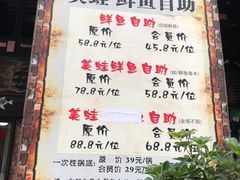 美蛙 鲜鱼自助
鲜鱼自助
原价 会员价
58.8元/位 45.8元/位
美蛙鲜鱼自助
原价 会员价
78.8元/位 58.8元/位
美蛙 自助
原价 会员价
88.8元/位 68.8元/位
一次性锅底: 原价 39元/锅
会员价 29元/锅